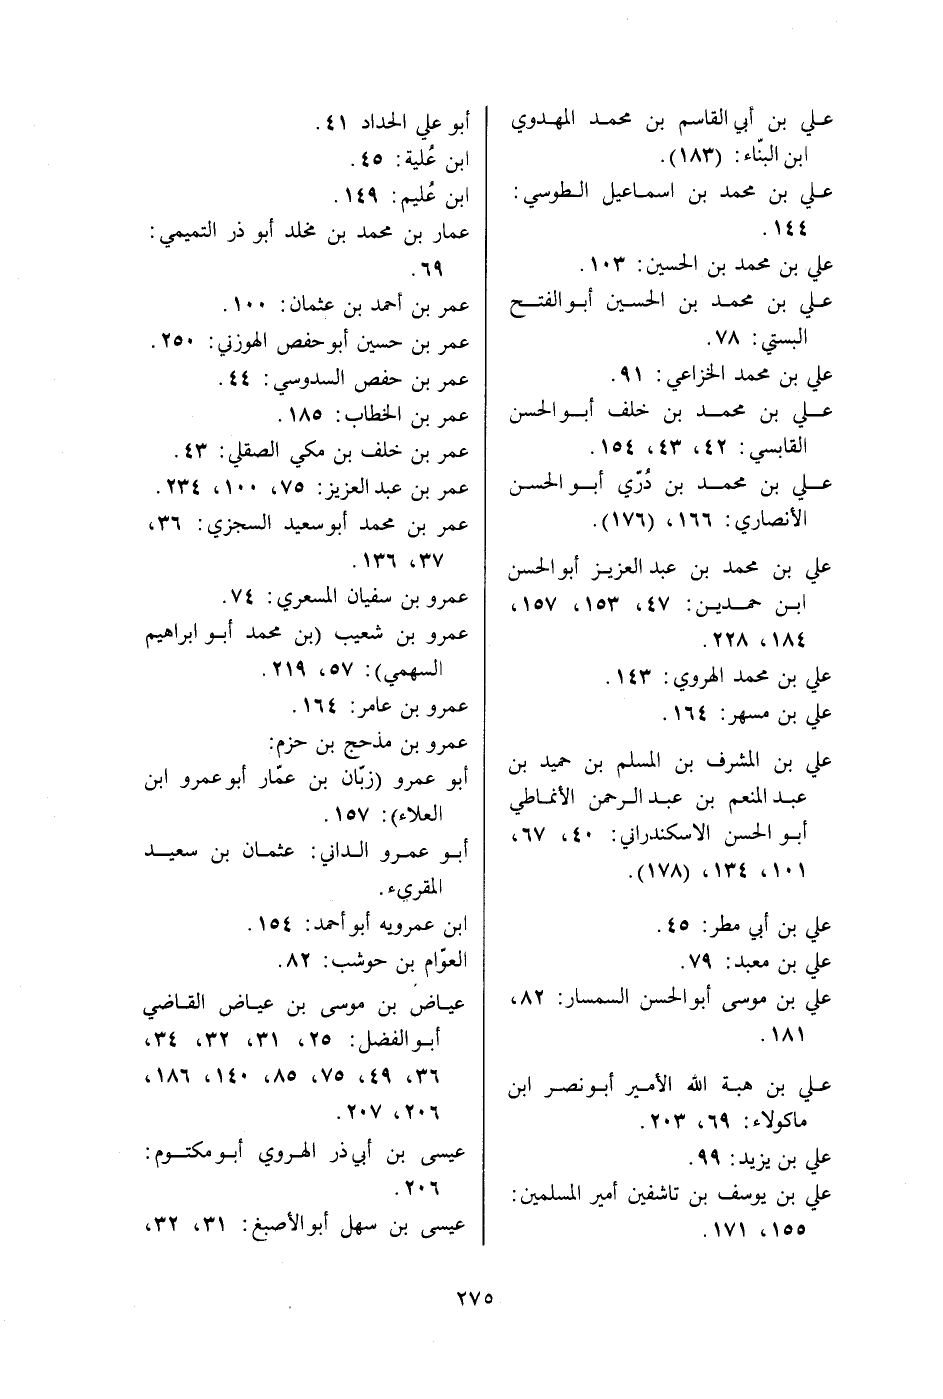 علي بن أبي القاسم بن محمد المهدوي
ابن البنّاء: (١٨٣).
علي بن محمد بن اسماعيل الطوسي:
١٤٤.
علي بن محمد بن الحسين: ١٠٣.
علي بن محمد بن الحسين أبو الفتح
البستي: ٧٨.
علي بن محمد الخزاعي: ٩١.
علي بن محمد بن خلف أبو الحسن
القابسي: ٤٢، ٤٣، ١٥٤.
علي بن محمد بن دُرّي أبو الحسن
الأنصاري: ١٦٦، (١٧٦).
علي بن محمد بن عبد العزيز أبو الحسن
ابن حمدين: ٤٧، ١٥٣، ١٥٧،
١٨٤، ٢٢٨.
علي بن محمد الهروي: ١٤٣.
علي بن مسهر: ١٦٤.
علي بن المشرف بن المسلم بن حميد بن
عبد المنعم بن عبد الرحمن الأنماطي
أبو الحسن الاسكندراني: ٤٠، ٦٧،
١٠١، ١٣٤، (١٧٨).
علي بن أبي مطر: ٤٥.
علي بن معبد: ٧٩.
علي بن موسى أبو الحسن السمسار: ٨٢،
١٨١.
علي بن هبة الله الأمير أبو نصر ابن
ماكولاء: ٦٩، ٢٠٣.
علي بن يزيد: ٩٩.
علي بن يوسف بن تاشفين أمير المسلمين:
١٥٥، ١٧١.
أبو علي الحداد ٤١.
ابن عُلية: ٤٥.
ابن عُليم: ١٤٩.
عمار بن محمد بن مخلد أبو ذر التميمي:
٦٩.
عمر بن أحمد بن عثمان: ١٠٠.
عمر بن حسين أبو حفص الهوزني: ٢٥٠.
عمر بن حفص السدوسي: ٤٤.
عمر بن الخطاب: ١٨٥.
عمر بن خلف بن مكي الصقلي: ٤٣.
عمر بن عبد العزيز: ٧٥، ١٠٠، ٢٣٤.
عمر بن محمد أبو سعيد السجزي: ٣٦،
٣٧، ١٣٦.
عمرو بن سفيان المسعري: ٧٤.
عمرو بن شعيب (بن محمد أبو ابراهيم
السهمي): ٥٧، ٢١٩.
عمرو بن عامر: ١٦٤.
عمرو بن مذحج بن حزم:
أبو عمرو (زبّان بن عمّار أبو عمرو ابن
العلاء): ١٥٧.
أبو عمرو الداني: عثمان بن سعيد
المقريء.
ابن عمرويه أبو أحمد: ١٥٤.
العوّام بن حوشب: ٨٢.
عياض بن موسى بن عياض القاضي
أبو الفضل: ٢٥، ٣١، ٣٢، ٣٤،
٣٦، ٤٩، ٧٥، ٨٥، ١٤٠، ١٨٦،
٢٠٦، ٢٠٧.
عيسى بن أبي ذر الهروي أبو مكتوم:
٢٠٦.
عيسى بن سهل أبو الأصبغ: ٣١، ٣٢،
٢٧٥